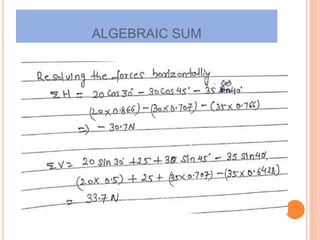 ALGEBRAIC SUM
Resolving the forces horizontally
ΣH = 20 Cos30° - 30Cos 45° - 35 cos 40°
(20×0.866) - (30×0.707) - (35×0.766)
=) - 30.7N
ΣV = 20 sin30 + 25 + 30 Sin 45° - 35 Sin40°,
(20× 0.5) + 25 + (35×0.707) - (35×0.6428)
= 33.7 N